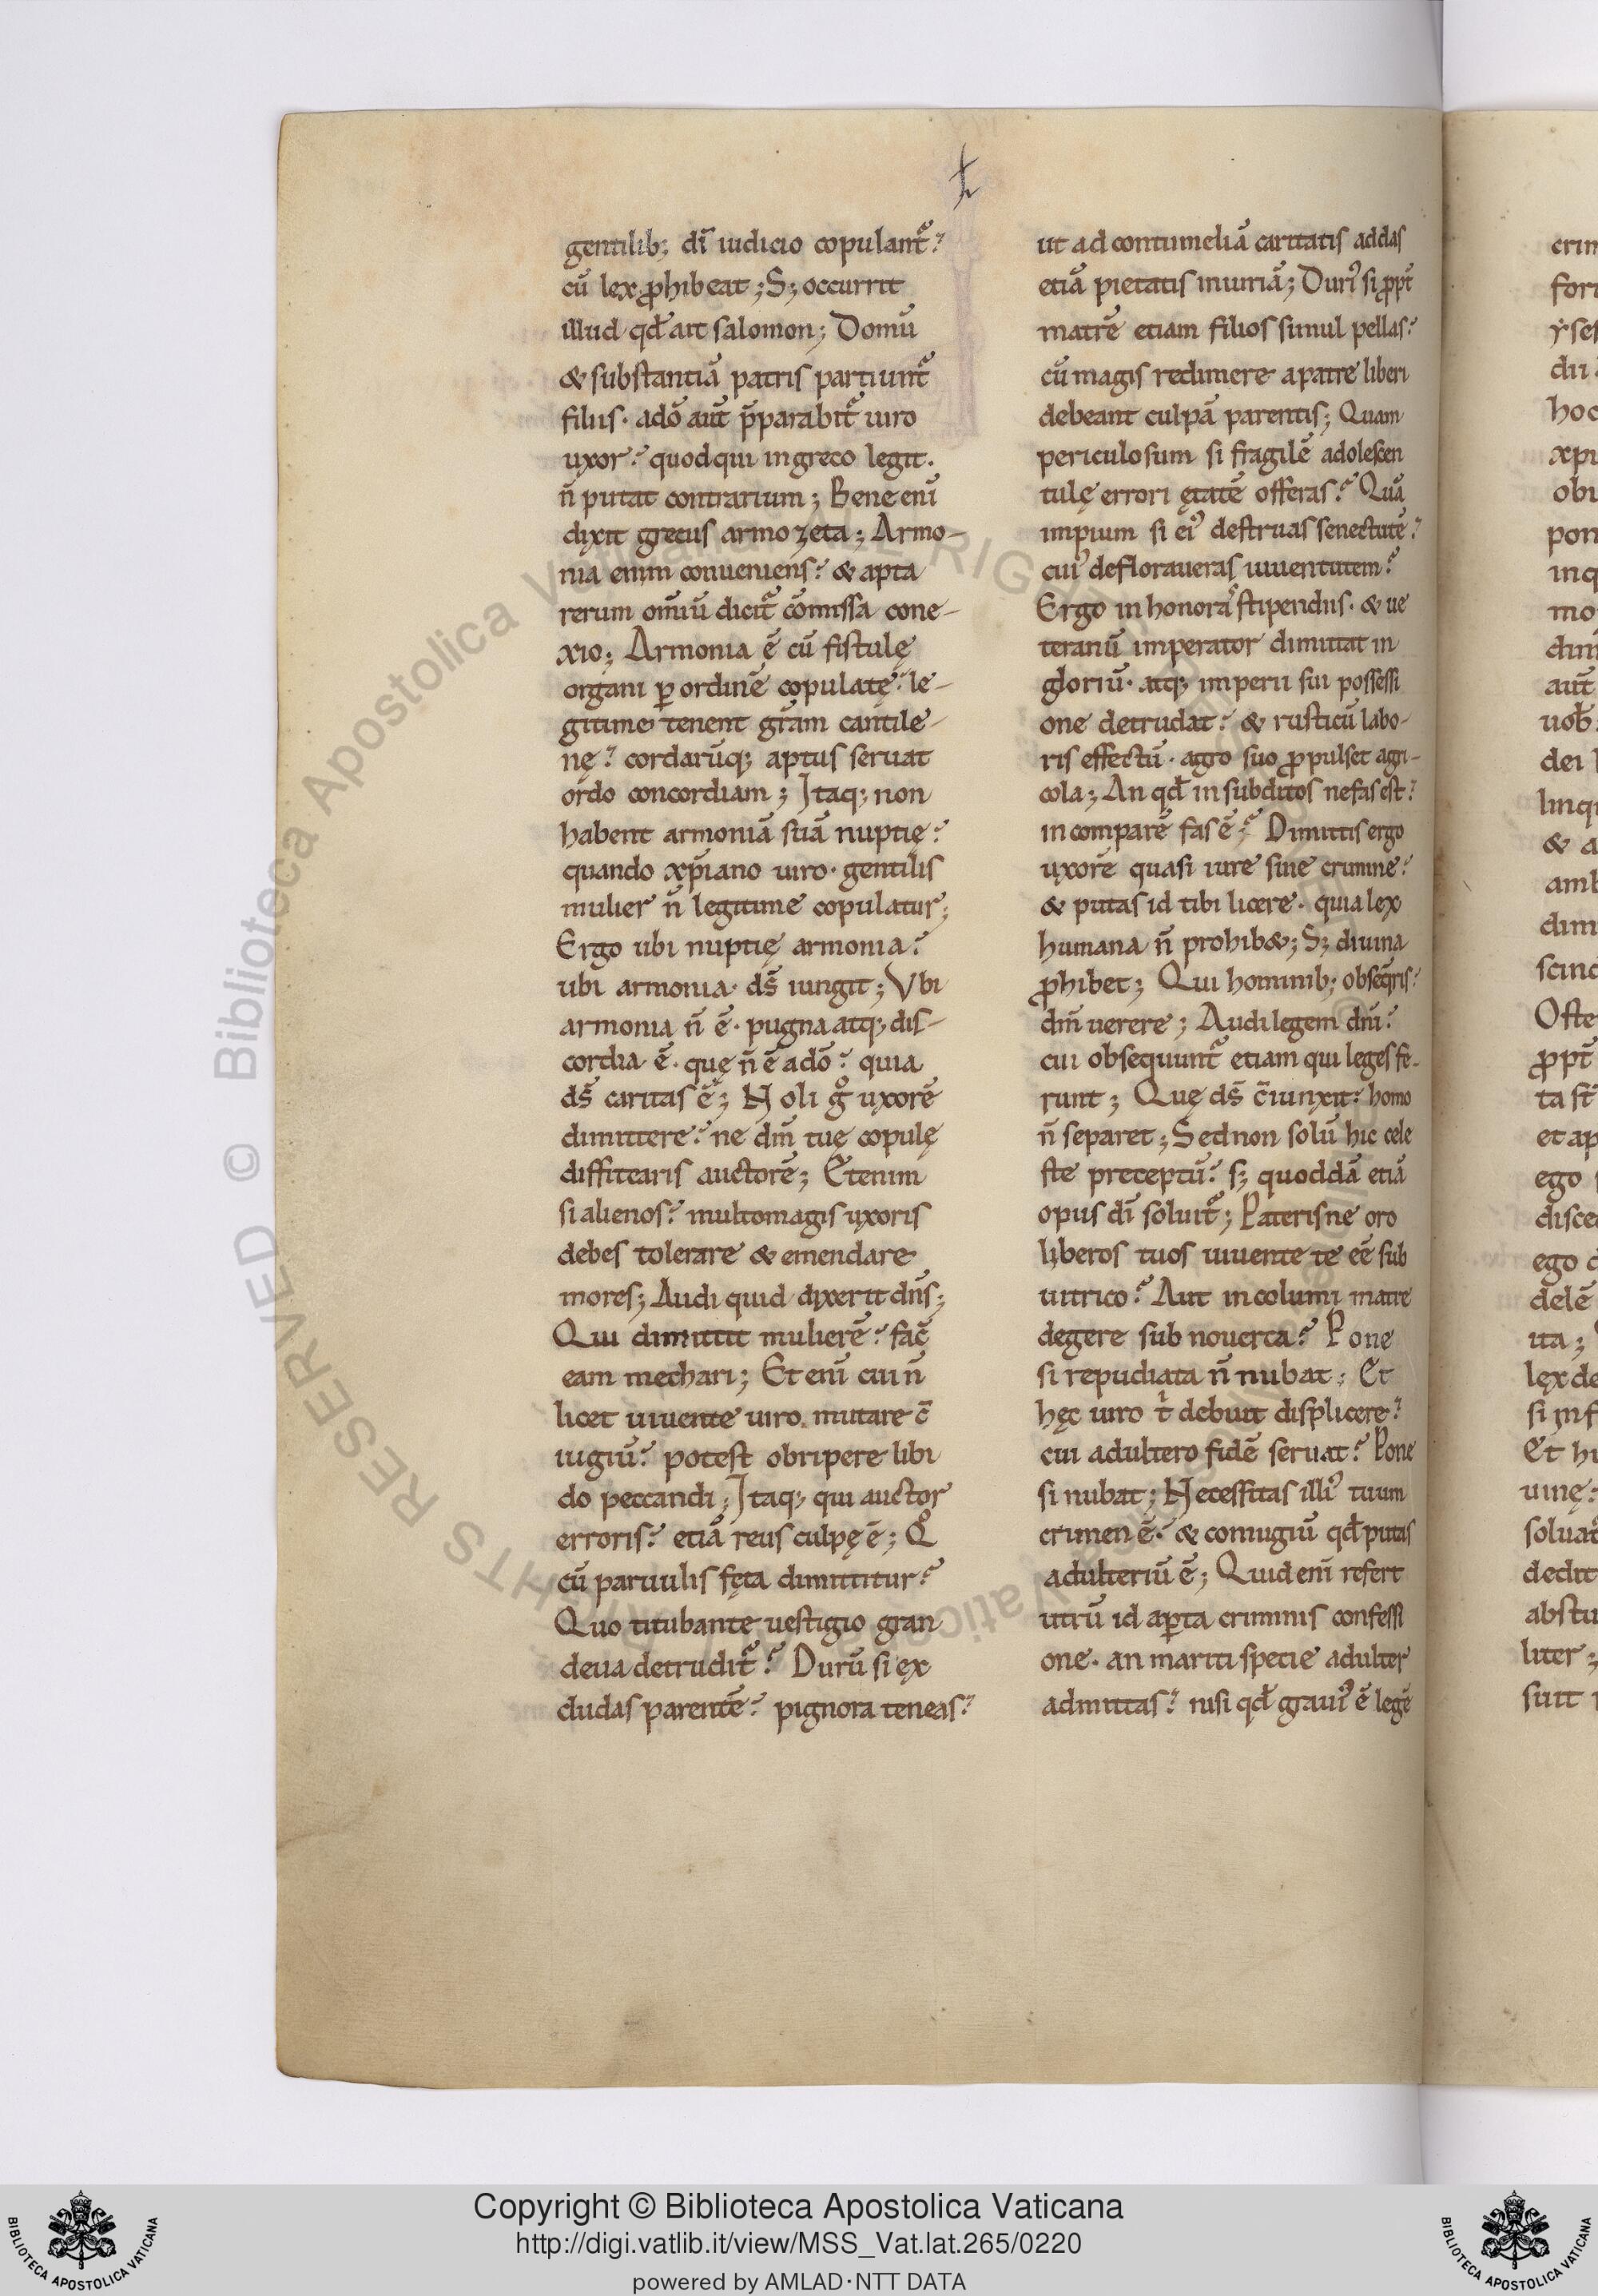 gentilib; dī iudicio copulant᷑?
cū lex ꝓhibeat; S; occurrit
illud qđ ait salomon; Domū
& substantiā patris partiunt᷑
filiis· adō aut̄ p̄parabit᷑ uiro
uxor? quod qui in greco legit.
n̄ putat contrarium; Bene enī
dixit grecus armozeta; Armo-
nia enim conueniens? & apta
rerum omīū dicit᷑ cōmissa cone-
xio; Armonia ē cū fistulę
organi ꝑ ordinē copulatę? le-
gitime tenent grām cantile-
nę? cordarūq; aptus seruat
ordo concordiam; Itaq; non
habent armoniā suā nuptię?
quando xp̄iano uiro· gentilis
mulier n̄ legitime copulatur;
Ergo ubi nuptię armonia?
ubi armonia· ds̄ iungit; Vbi
armonia n̄ ē· pugna atq; dis-
cordia ē· quę n̄ ē adō? quia
ds̄ caritas ē; Noli gͦ uxorē
dimittere? ne dm̄ tuę copulę
diffitearis auctorē; Etenim
si alienos? multomagis uxoris
debes tolerare & emendare
mores; Audi quid dixerit dn̄s;
Qui dimittit mulierē? fac̄
eam mechari; Et enī cui n̄
licet uiuente uiro mutare c̄
iugiū? potest obripere libi
do peccandi; Itaq; qui auctor
erroris? etiā reus culpę ē; Qͦ
cū paruulis fęta dimittitur?
Quo titubante uestigio gran
deua detrudit᷑? Durū si ex
cludas parentē? pignora teneas?
ut ad contumeliā caritatis addas
etiā pietatis iniuriā; Duri᷒ si ꝓpt̄
matrē etiam filios simul pellas?
cū magis redimere a patre liberi
debeant culpā parentis; Quam
periculosum si fragilē adolescen
tulę errori ętatē offeras? Quā
impium si ei᷒ destruas senectutē?
cui᷒ defloraueras iuuentutem?
Ergo in honora᷒ stipendiis· & ue
teranū imperator dimittat in
gloriū· atq; imperii sui possessi
one detrudat? & rusticū labo-
ris effectū· agro suo ꝓpulset agri-
cola; An qđ in subditos nefas est?
in comparē fas ē? Dimittis ergo
uxorē quasi iure sine crimine?
& putas id tibi licere· quia lex
humana n̄ prohib&; S; diuina
ꝓhibet; Qui hominib; obseq̄ris?
dm̄ uerere; Audi legem dnī?
cui obsequunt᷑ etiam qui leges fe-
runt; Quę ds̄ c̄iunxit? homo
n̄ separet; Sed non solū hic cele
ste preceptū? s; quoddā etiā
opus dī soluit᷑; Paterisne oro
liberos tuos uiuente te eē sub
uitrico? Aut incolumi matre
degere sub nouerca? Pone
si repudiata n̄ nubat; Et
hęc uiro t̍ debuit displicere?
cui adultero fidē seruat? Pone
si nubat; Necessitas illi᷒ tuum
crimen ē? & coniugiū qđ putas
adulteriū ē; Quid enī refert
utrū id aꝑta criminis confessi
one· an mariti specie adulter
admittas? nisi qđ graui᷒ ē legē
Copyright © Biblioteca Apostolica Vaticana
http://digi.vatlib.it/view/MSS_Vat.lat.265/0220
powered by AMLAD·NTT DATA